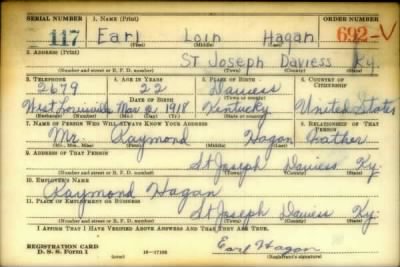 SERIAL NUMBER 1. NAME (Print) ORDER NUMBER
117 Earl Loin Hagan 692-V
(First) (Middle) (Last)
2. ADDRESS (Print)
St Joseph Daviess Ky
(Number and street or R. F. D. number) (Town) (County) (State)
3. TELEPHONE 4. AGE IN YEARS 5. PLACE OF BIRTH 6. COUNTRY OF CITIZENSHIP
2679 22 Daviess
DATE OF BIRTH (Town or county)
West Louisville Mar 1918 Kentucky United States
(Exchange) (Number) (Mo.) (Day) (Yr.) (State or country)
7. NAME OF PERSON WHO WILL ALWAYS KNOW YOUR ADDRESS 8. RELATIONSHIP OF THAT PERSON
Mr. Raymond Hagan Father
(Mr., Mrs., Miss) (First) (Middle) (Last)
9. ADDRESS OF THAT PERSON
St Joseph Daviess Ky.
(Number and street or R. F. D. number) (Town) (County) (State)
10. EMPLOYER'S NAME
Raymond Hagan
11. PLACE OF EMPLOYMENT OR BUSINESS
St Joseph Daviess Ky.
(Number and street or R. F. D. number) (Town) (County) (State)
I AFFIRM THAT I HAVE VERIFIED ABOVE ANSWERS AND THAT THEY ARE TRUE.
REGISTRATION CARD
D. S. S. Form 1 (over) Earl Hagan
(Registrant's signature)